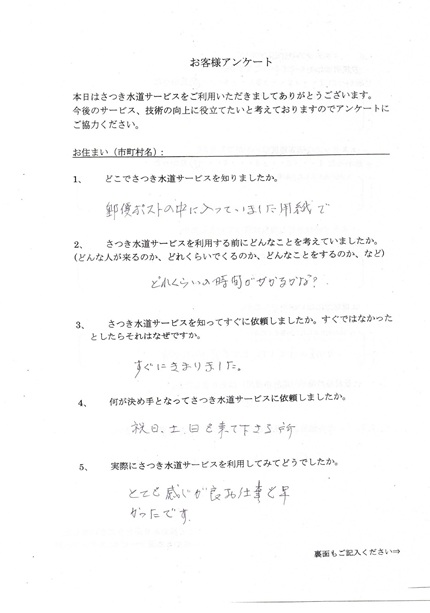 お客様アンケート
本日はさつき水道サービスをご利用いただきましてありがとうございます。
今後のサービス、技術の向上に役立てたいと考えておりますのでアンケートに
ご協力ください。
お住まい（市町村名）：
1、 どこでさつき水道サービスを知りましたか。
郵便ポストの中に入っていました用紙で
2、 さつき水道サービスを利用する前にどんなことを考えていましたか。
(どんな人が来るのか、どれくらいでくるのか、どんなことをするのか、など)
どれくらいの時間がかかるかな？
3、 さつき水道サービスを知ってすぐに依頼しましたか。すぐではなかった
としたらそれはなぜですか。
すぐにきまりました。
4、 何が決め手となってさつき水道サービスに依頼しましたか。
祝日、土、日も来て下さる所
5、 実際にさつき水道サービスを利用してみてどうでしたか。
とても感じが良お仕事も早
かったです。
裏面もご記入ください⇒